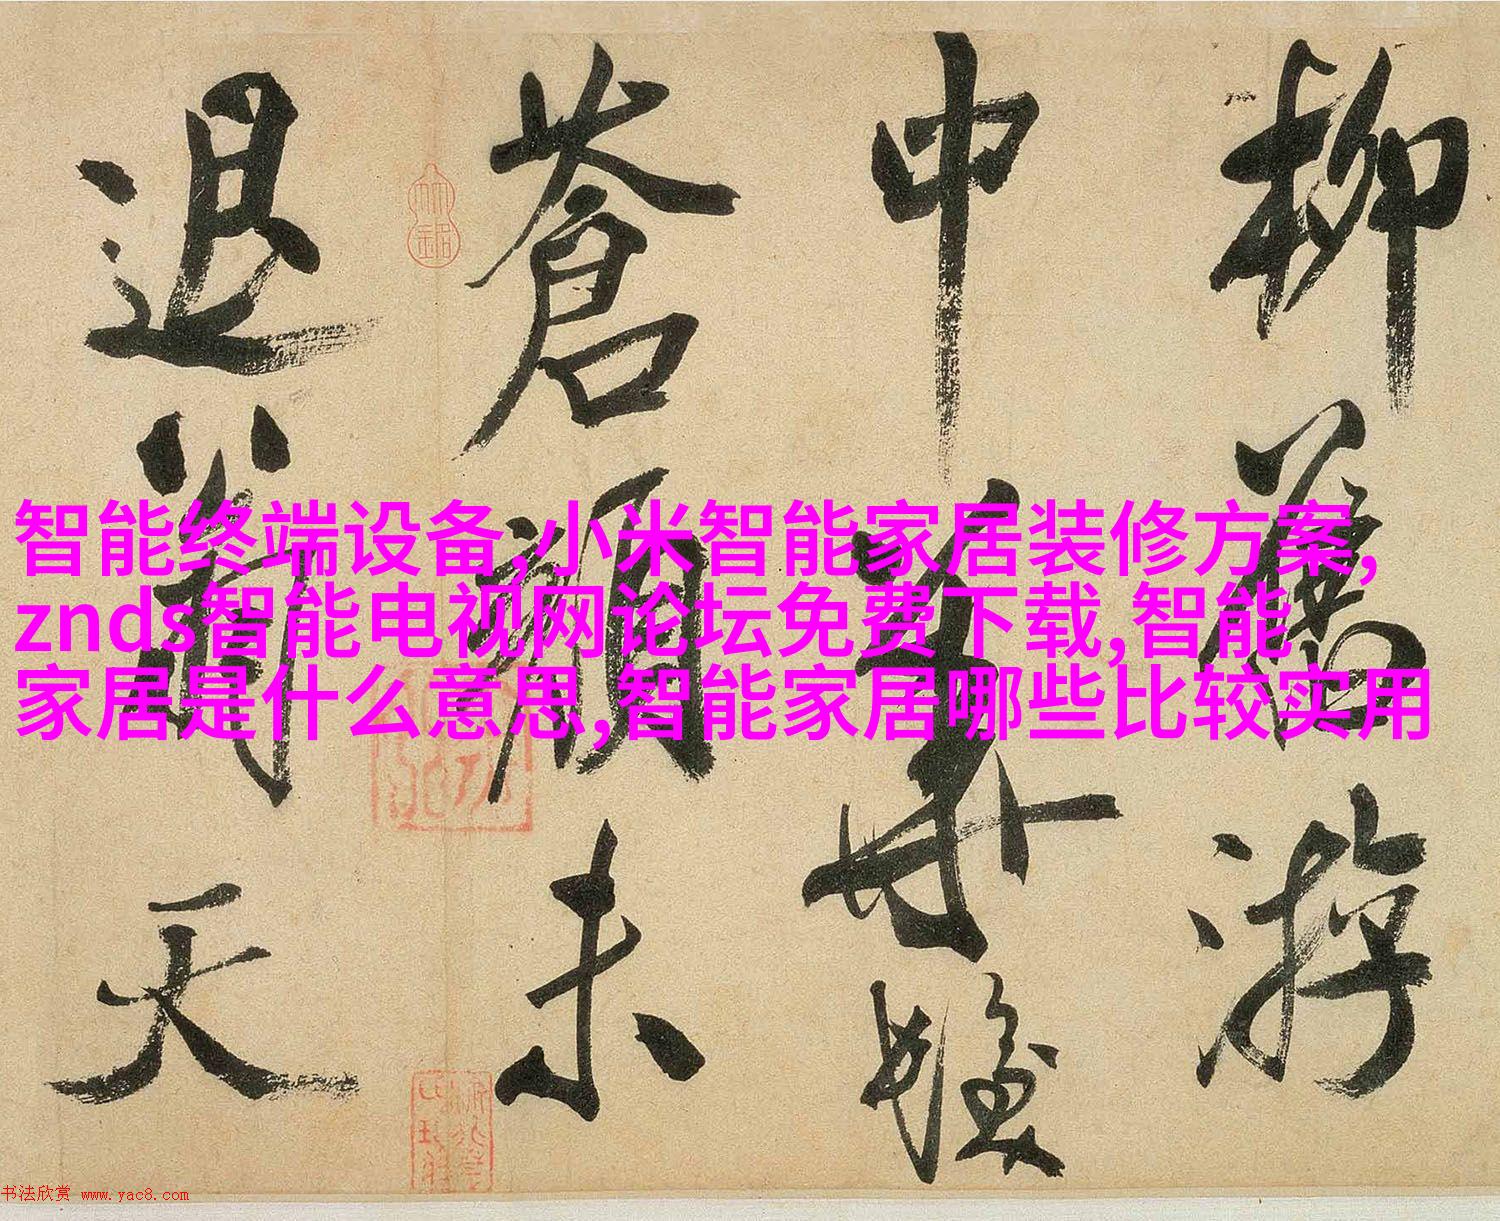 柳舊游
中
蒼顏未
退天
智能终端设备,小米智能家居装修方案,
znds智能电视网论坛免费下载,智能
家居是什么意思,智能家居哪些比较实用
书法欣赏 www.yac8.com